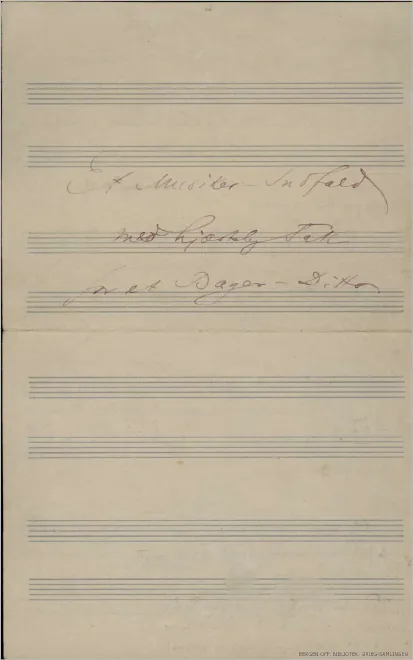 Et Musiker-Indfald
med hjertelig Tak
for et Bager-Ditto
BERGEN OFF. BIBLIOTEK. GRIEG-SAMLINGEN